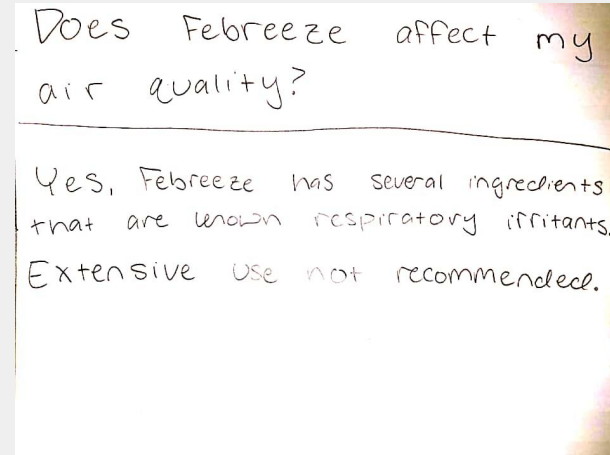 Does Febreeze affect my
air quality?
Yes, Febreeze has several ingredients
that are known respiratory irritants.
Extensive use not recommended.